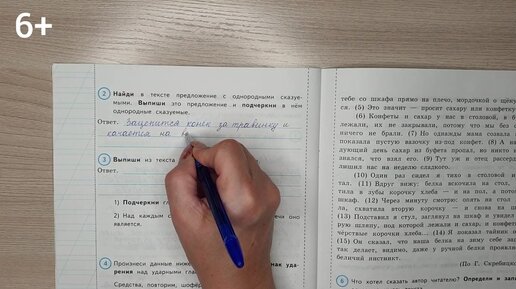 6+
2 Найди в тексте предложение с однородными сказуе-
мыми. Выпиши это предложение и подчеркни в нём
однородные сказуемые.
Ответ. Зацепится конск за травинку и
качается на
3 Выпиши из текста
Ответ.
1) Подчеркни
2) Над каждым
является.
4 Произнеси данные
дарения над ударным
Средства, повторим,
тебе со шкафа прямо на плечо, мордочкой о щёку
ся. (5) Это значит — просит сахару или конфетку
(6) Конфеты и сахар у нас в столовой, в
лежали, их не закрывали, потому что мы без с
ничего не брали. (7) Но однажды мама созвала
показала пустую вазочку из-под конфет. (8) А на
дующий день сахар из буфета пропал, но никто н
знался, что взял. (9) Тут уж и отец рассерд
лишил нас на неделю сладкого.
(10) Один раз сидел я тихо в столовой и
тал. (11) Вдруг вижу: белка вскочила на стол,
тила в зубы корочку хлеба — и на пол, а пото
шкаф. (12) Через минуту смотрю: опять на стол
ла, схватила вторую корочку — и снова на ш
(13) Подставил я стул, заглянул на шкаф и увидел
рую шляпу, под которой лежали и сахар, и конфет
чёрствые корочки хлеба... (14) Я показал тайник о
(15) Он сказал, что наша белка на зиму себе зап
так делает, видимо, даже у ручной белки проявля
беличий инстинкт.
(По Г. Скребицко
6 Что хотел сказать автор читателю? Определи и запи